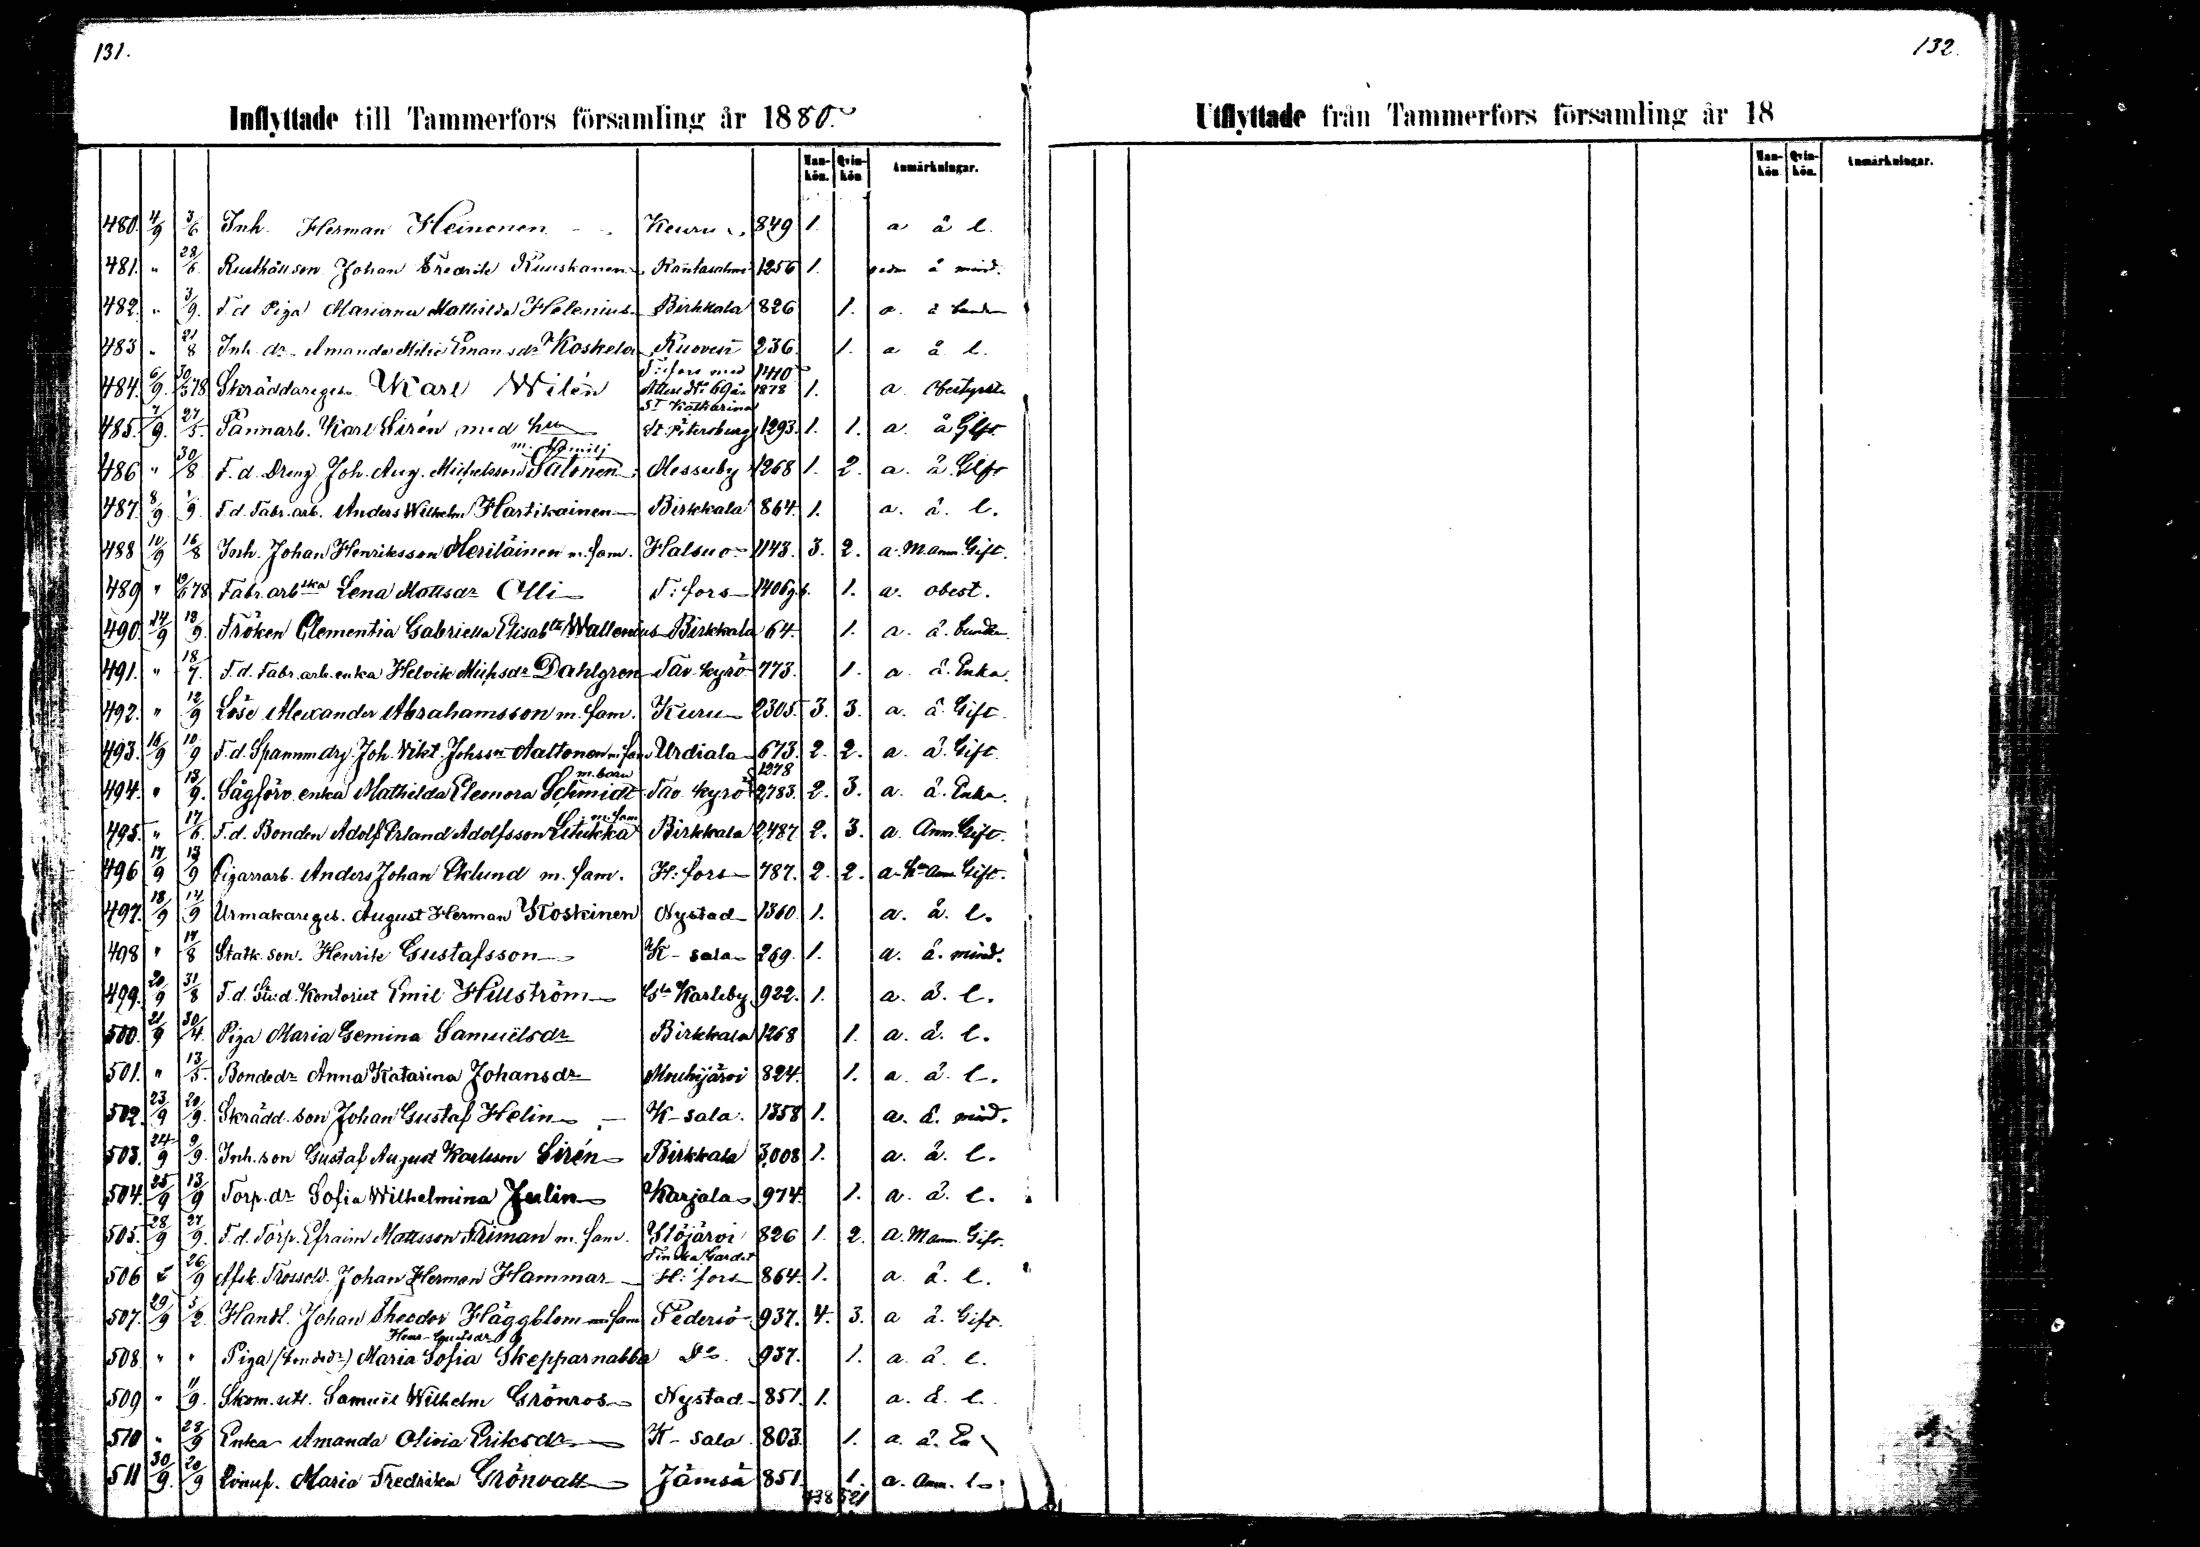 131.
Inflyttade till Tammerfors församling år 1880.
Man-kön. Qvin-kön Anmärkningar.
480. 4/9 3/6 Inh. Herman Heinonen Keuru 849 1. a å l.
481. " 28/6 Rusthåll son Johan Fredrik Kuuskanen Kantasalmi 1256 1. å mind.
482. " 3/9. F.d Piga Marianna Mathilda Helenius Birkkala 826 1. a. å
483 " 21/8 Inh. dr Amanda Emansdr Koskela Ruovesi 236. 1. a å l.
T:fors med 1410
484. 6/9. 30/3 78 Skräddareges. Karl Wilén Attest No 69 år 1878 1. a. Obestyrkt
St Katharina
485. 7/9. 27/5. Pannarb. Karl Sirén med hu St. Petersburg 1293. 1. 1. a. å Gift
m. familj
486 " 30/8 F.d. Dreng Joh. Aug. Michelsson Salonen Messuby 1268 1. 2. a. å. Gift
487. 8/9 /9. F.d. Fabr. arb. Anders Wilhelm Hartikainen Birkkala 864. 1. a. å. l.
488 10/9 16/8 Inh. Johan Henriksson Meriläinen m. fam. Halsuo 1143. 3. 2. a. Mann Gift.
489 " 19/6 78 Fabr. arbska Lena Mattsdr Olli T:fors 1406 1. a. obest.
490. 14/9 13/9. Fröken Clementia Gabriella Elisabth Wallenius Birkkala 64. 1. a. å.
491. " 18/7. F.d. Fabr. arb. enka Helvik Michsdr Dahlgren Tav. kyrö 773. 1. a å. Enka.
492. " 12/9 Löse Alexander Abrahamsson m. fam. Kuru 2305. 3. 3. a. å. Gift.
493. 16/9 10/9 F.d. Spannm drg. Joh. Vikt. Johsson Aaltonen m. fam Urdiala 673. 2. 2. a. å. Gift
m. barn 1278
494. " 13/9. Sågförv. enka Mathilda Eleonora Schmidt Tav. kyrö 2,783. 2. 3. a. å. Enka.
m. fam
495. " 17/6. F.d. Bonden Adolf Erland Adolfsson Litukka Birkkala 2,487 2. 3. a. Anm. Gift.
496 17/9 13/9 Cigarrarb. Anders Johan Eklund m. fam. H:fors 787. 2. 2. a. Gift.
497. 18/9 14/9 Urmakareges. August Herman Koskinen Nystad 1360. 1. a. å. l.
498 " 17/8 Statk. son. Henrik Gustafsson K-sala 269. 1. a. å. mind.
499. 20/9 31/8 F.d. Stud. Kontorist Emil Hillström Gla Karleby 922. 1. a. å. l.
500. 21/9 30/4. Piga Maria Gemina Samuelsdr Birkkala 1268 1. a. å. l.
501. " 13/5. Bondedr Anna Katarina Johansdr Mouhijärvi 824. 1. a. å. l.
502. 23/9 20/9. Skrädd. son Johan Gustaf Helin K-sala. 1358 1. a. å. mind.
503. 24/9 9/9. Inh. son Gustaf August Karlsson Sirén Birkkala 3,008 1. a. å. l.
504. 25/9 13/9 Torp. dr Sofia Wilhelmina Julin Karjala 974. 1. a. å. l.
505. 28/9 27/9. F.d. Torp. Efraim Mattsson Friman m. fam. Ylöjärvi 826 1. 2. a. Mann. Gift.
Finska Gardet
506 " 26/9 Afsk. Trossold. Johan Herman Hammar H:fors 864. 1. a. å. l.
507. 29/9 5/2. Handl. Johan Theodor Häggblom m. fam Pedersö 937. 4. 3. a å. Gift.
508. " " Piga Maria Sofia Skepparnabba Do 937. 1. a. å. l.
509 " 11/9. Skom. utl. Samuel Wilhelm Grönros Nystad 851. 1. a. å. l.
510 " 28/9 Enka Amanda Olivia Eriksdr K-sala. 803. 1. a. å. En
511 30/9. 20/9 Qvinsp. Maria Fredrika Grönvall Jämsä 851. 1. a. Anm. l
438 521
132.
Utflyttade från Tammerfors församling år 18
Man-kön Qvin-kön. Anmärkningar.